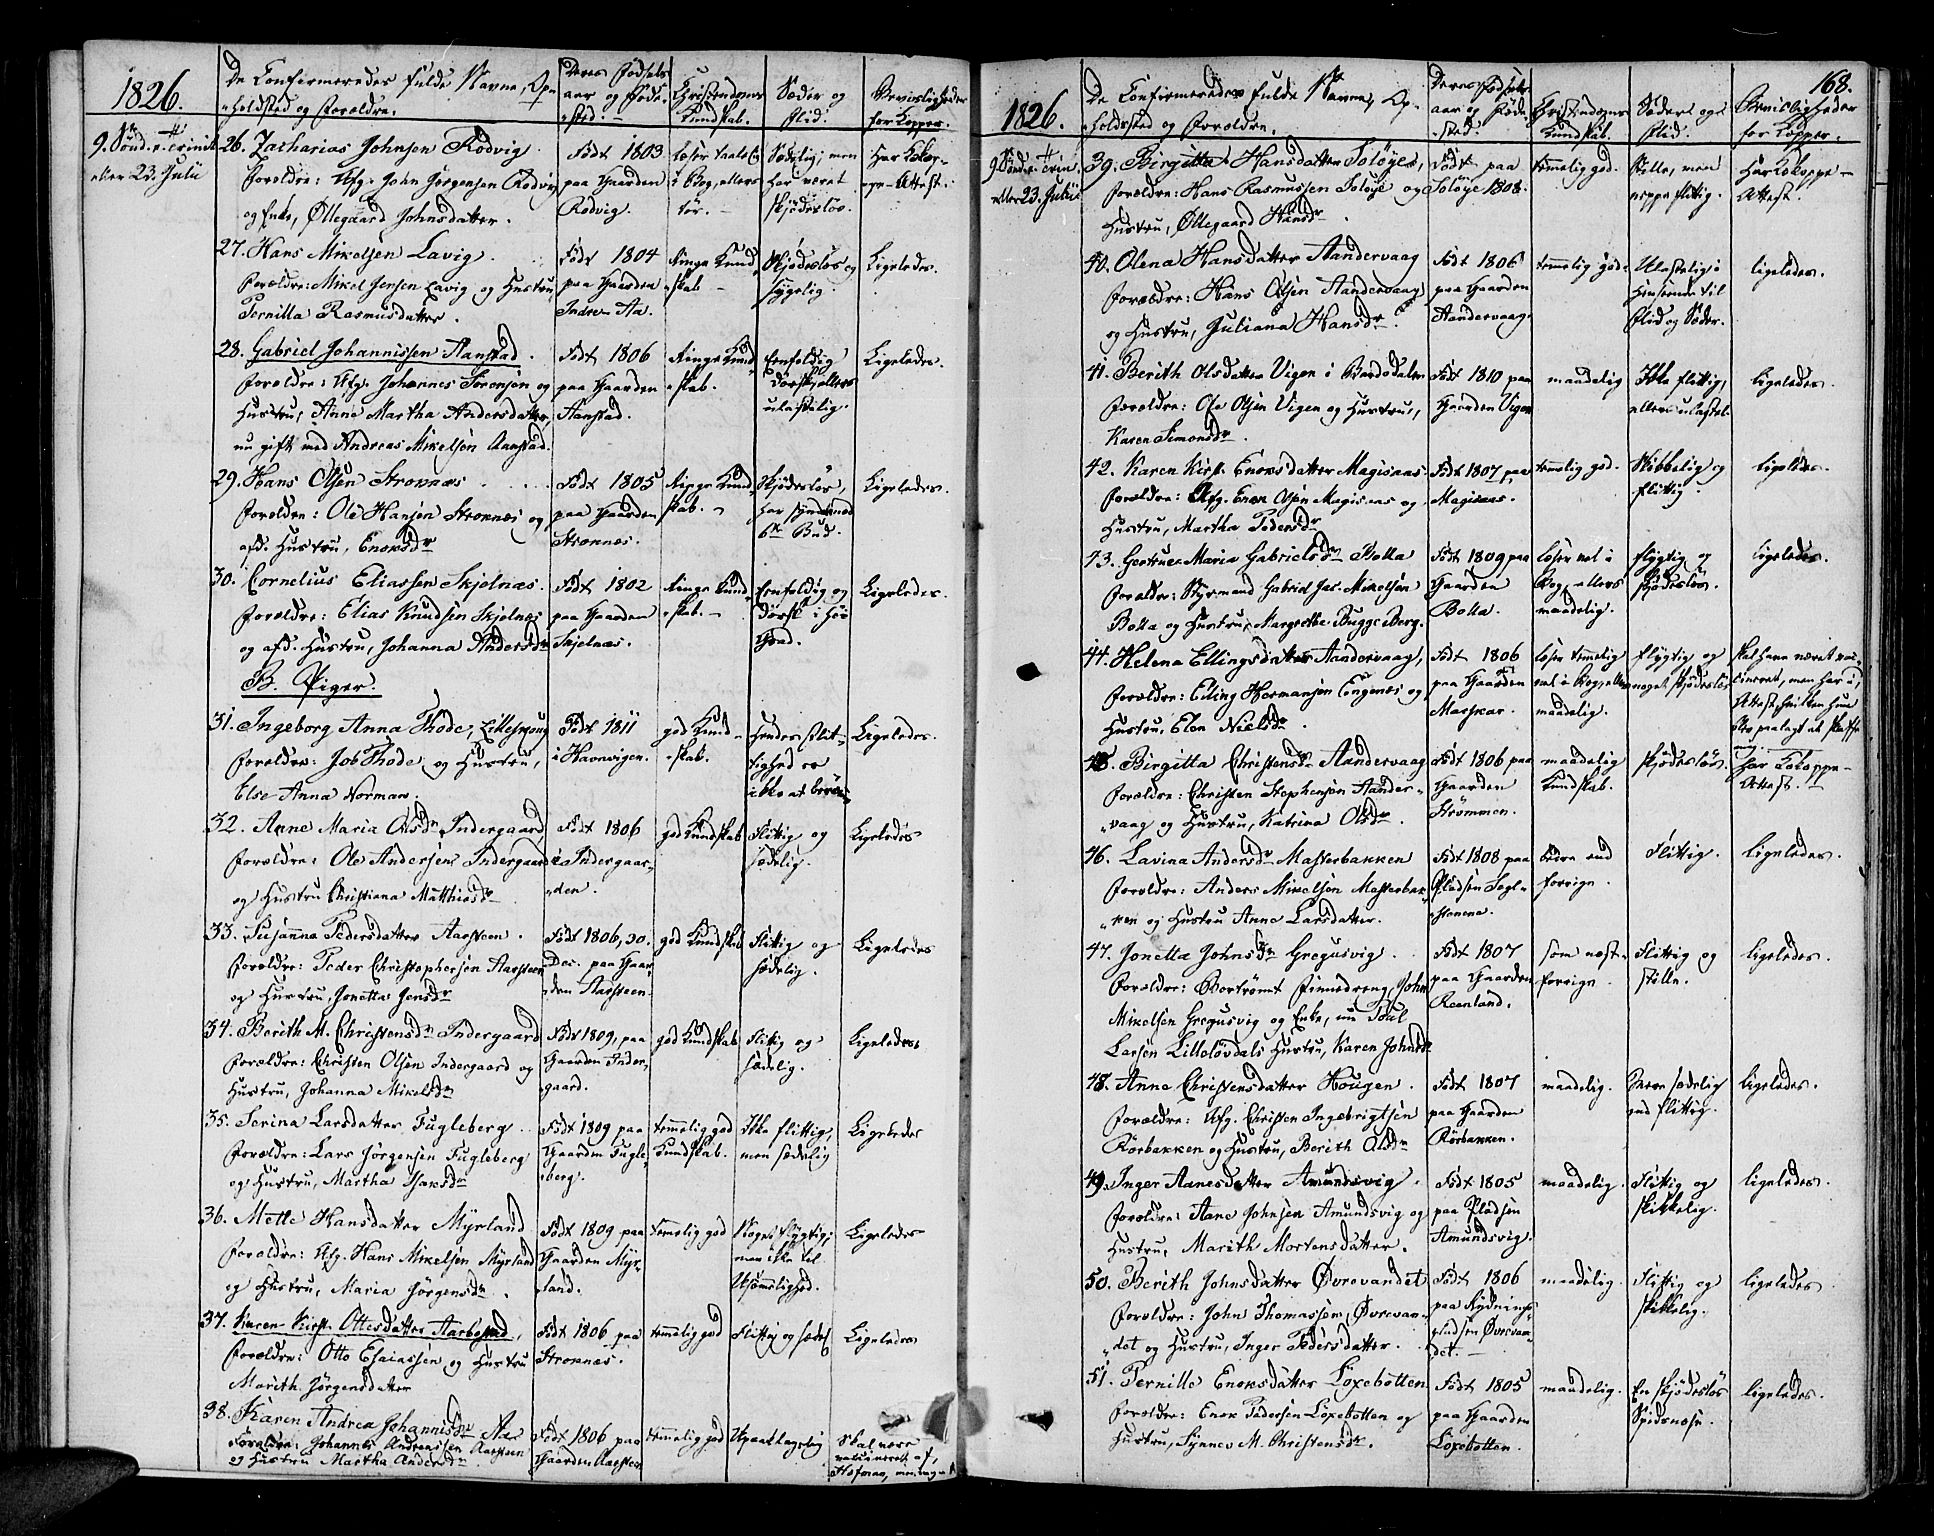 1826.
De Confirmeredes fulde Navne, Op-
holdsted og Forældre.
Deres Fødsels
aar og Føde-
sted.
Christendoms
Kundskab.
Sæder og
Flid.
Beviisligheder
for Kopper.
9. Sønd. e. Trinit.
eller 23. Julii
26. Zacharias Johnsen Rödvig
Forældre: Afg. John Jørgensen Rödvig
og Enke, Øllegaard Johnsdatter.
Födt 1803
paa Gaarden
Rödvig.
Læser taalel.
i Bog, ellers
tør.
Sædelig; men
har været
skjødesløs.
Har Kokop-
pe-Attest.
27. Hans Mikelsen Lavig
Forældre: Mikel Jensen Lavig og Hustru
Pernilla Rasmusdatter.
Födt 1804
paa Gaarden
Indre-Aa.
Ringe Kund-
skab.
Skjødesløs og
sygelig
Ligeledes.
28. Gabriel Johannissen Aanstad.
Forældre: Afg. Johannes Sörensen og
Hustru, Anne Martha Andersdatter,
nu gift med Andreas Mikelsen Aanstad.
Födt 1806
paa Gaarden
Aanstad.
Ringe Kund-
skab.
Eenfoldig
ulastelig.
Ligeledes.
29. Hans Olsen Stroknæs
Forældre: Ole Hansen Stroknæs og
afd. Hustru, Enoksdr
Födt 1805
paa Gaarden
Stroknæs.
Ringe Kund-
skab.
Skjødesløs,
har syndet mod
6te Bud.
Ligeledes.
30. Cornelius Eliassen Skjelnæs.
Forældre: Elias Knudsen Skjelnæs
og afd. Hustru, Johanna Andersdr
Födt 1802
paa Gaarden
Skjelnæs.
Ringe Kund-
skab.
Eenfoldig og
dorsk i høi
Grad.
Ligeledes.
B. Piger.
31. Ingeborg Anna Thode, Lillejoug
Forældre: Job Thode og Hustru,
Else Anna Norman.
Födt 1811
i Havnvigen.
god Kund-
skab.
Hendes Flit-
tighed er
ikke at berøm-
Ligeledes.
32. Anne Maria Olsdr Indergaard
Forældre: Ole Andersen Indergaard
og Hustru Christiana Matthiasdr
Födt 1806
i Indergaar-
den.
god Kundskab
Flittig og
sædelig.
Ligeledes
33. Susanna Pedersdatter Aarsteen.
Forældre: Peder Christophersen Aarsteen
og Hustru, Jonetta Jensdr
Födt 1806, 30.
Dec. paa Gaar-
den Aarsteen.
god Kundskab
Flittig og
sædelig.
Ligeledes
34. Berith M. Christensdr Indergaard
Forældre: Christen Olsen Indergaard og
Hustru, Johanna Mikelsdr
Födt 1809, paa
Gaarden Inder-
gaard.
god Kundskab
Flittig og
sædelig.
Ligeledes
35. Serina Larsdatter Fugleberg
Forældre: Lars Jørgensen Fugleberg
og Hustru, Martha Isaksdr
Födt 1809 paa
Gaarden Fugle-
berg.
temmelig god
Kundskab.
Ikke flittig,
men sædelig
Ligeledes
36. Mette Hansdatter Myrland
Forældre: Afg. Hans Mikelsen Myrland
og Hustru, Maria Jørgensdr.
Födt 1809 paa
Gaarden Myr-
land.
temelig god
Noget flygtig;
men ikke til
Usømmelighed.
Ligeledes
37. Karen Kirst. Ottesdatter Aarbogstad,
Forældre: Otto Esaiassen og Hustru
Marith Jørgensdatter
Födt 1806 paa
Stroknæs.
temelig god
Flittig og sædel.
Ligeledes
38. Karen Andrea Johannisdr Aar-
Forældre: Johannes Andreasen Aarsteen
og Hustru Martha Andersdr
Födt 1806 paa
Gaarden Aarsteen
temmelig god
Upaaklagelig
Skal være
vaccineret af,
1826.
De Confirmeredes fulde Navne, Op-
holdsted og Forældre.
Deres Fødsels
aar og Føde-
sted.
Christendoms
Kundskab.
Sæder og
Flid.
168.
Beviisligheder
for Kopper.
9. Sønd. e. Trin.
eller 23. Julii
39. Birgitta Hansdatter Solöye,
Forældre: Hans Rasmussen Solöye og
Hustru, Øllegaard Hansdr.
Födt paa
Solöye 1808.
temmelig god.
Stille, men
neppe flittig.
Har Kokoppe-
Attest.
40. Olena Hansdatter Aandervaag
Forældre: Hans Olsen Aandervaag
og Hustru, Juliana Hansdr.
Födt 1806
paa Gaarden
Aandervaag.
temmelig god.
Ulastelig i
Henseende til
Flid og Sæder.
ligeledes.
41. Berith Olsdatter Vigen i Bardodalen
Forældre: Ole Olsen Vigen og Hustru,
Karen Simonsdr.
Födt 1810 paa
Gaarden Vigen
maadelig
Ikke flittig,
ellers ulastel.
ligeledes.
42. Karen Kirst. Enoksdatter Magisaas.
Forældre: Afg. Enok Olsen Magisaas og
Hustru, Martha Pedersdr
Födt 1807, paa
Magisaas.
temelig god.
Skikkelig og
flittig.
ligeledes.
43. Gertrue Maria Gabrielsdr Bolla
Forældre: Styrmand Gabriel Jas. Mikelsen
Bolla og Hustru, Margrethe Bugge Berg.
Födt 1809 paa
Gaarden
Bolla.
læser vel i
Bog, ellers
maadelig.
flygtig og
skjødesløs.
ligeledes.
44. Helena Ellingsdatter Aandervaag,
Forældre: Elling Hermansen Engenæs og
Hustru, Elen Nielsdr.
Födt 1806
paa Gaarden
læser temmelig
vel i Bog, ellers
maadelig.
flygtig og
noget skjødesløs
skal have været vac-
cineret, men har ei
Attest, hvilken hun
blev paalagt at skaffe
sig.
45. Birgitta Christensdr Aandervaag
Forældre: Christen Stephensen Aander-
vaag og Hustru, Katrina Olsdr.
Födt 1806 paa
Gaarden
Strømmen.
maadelig
Kundskab.
skjødesløs.
har Kokoppe-
Attest.
46. Lavina Andersdr Masterbakken
Forældre: Anders Mikelsen Masterbak-
ken og Hustru Anne Larsdatter.
Födt 1808 paa
Pladsen Segl-
stenene.
bedre end
forrige.
Flittig.
ligeledes.
47. Jonetta Johnsdr Gregusvig
Forældre: Bortrömt Finnedreng, John
Mikelsen Gregusvig og Enke, nu Poul
Larsen Lillelövdals Hustru, Karen Johnsdr
Födt 1807
paa Gaarden
Reenland.
som næst-
forrige.
Flittig og
stille.
ligeledes.
48. Anne Christensdatter Hougen.
Forældre: Afg. Christen Ingebrigtsen
Rörbakken og Hustru, Berith Olsdr
Födt 1807
paa Gaarden
Rörbakken.
maadelig.
Mere sædelig
end flittig.
ligeledes.
49. Inger Aanesdatter Amundsvig.
Forældre: Aane Johnsen Amundsvig og
Hustru, Marith Mortensdatter.
Födt 1805
paa Pladsen
Amundsvig.
maadelig.
Flittig og
skikkelig.
ligeledes.
50. Berith Johnsdatter Øvrevandet
Forældre: John Thomassen Øvrevan-
det og Hustru, Inger Pedersdatter.
Födt 1806
paa Rydnings-
pladsen Øvrevan-
det.
maadelig.
Flittig og
skikkelig.
ligeledes.
51. Pernille Enoksdatter Löxebotten
Forældre: Enok Pedersen Löxebotten og
Hustru, Synnev M. Christensdr.
Födt 1805
paa Gaarden
Löxebotten.
maadelig.
En skjødesløs
ligeledes.